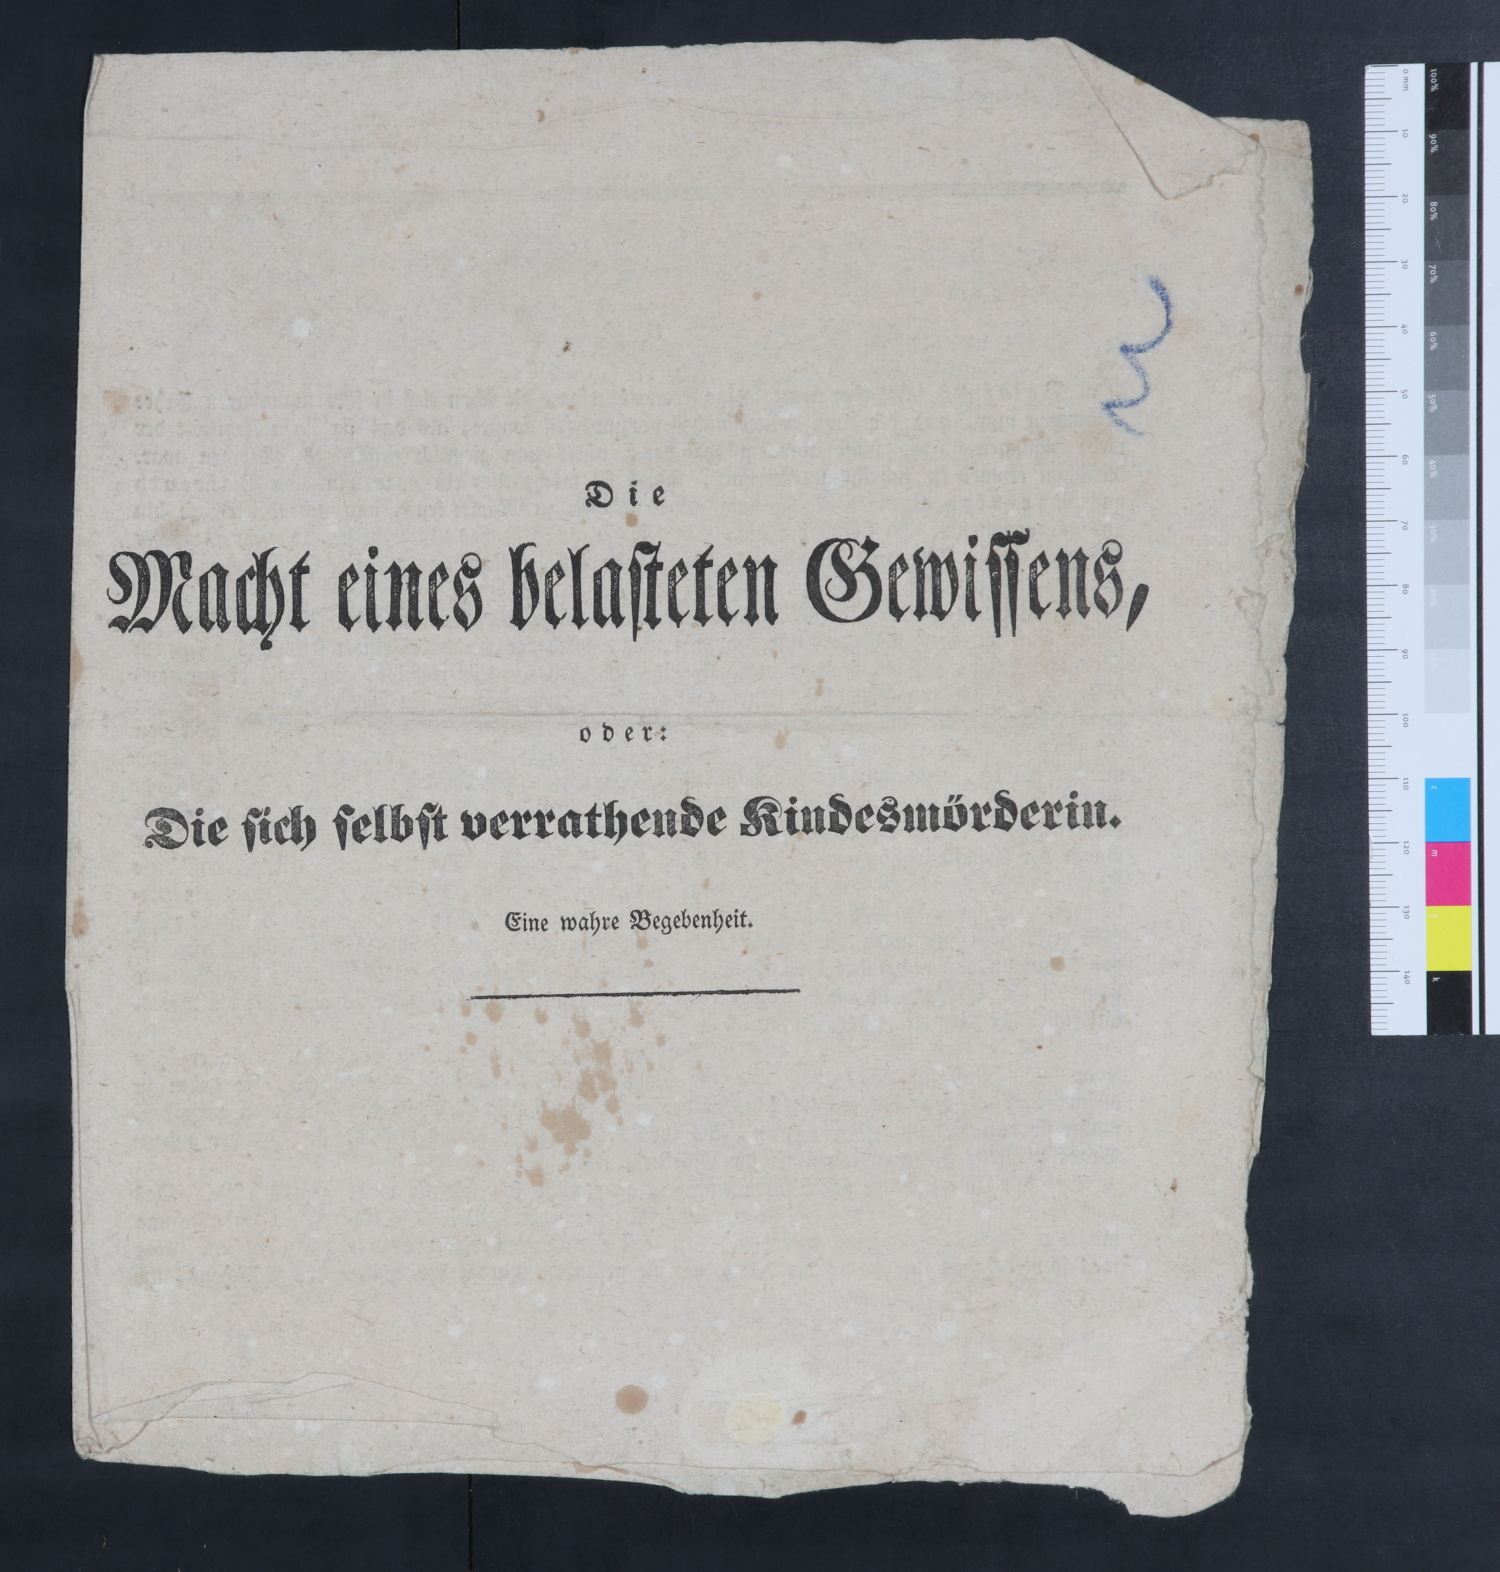 Die
Macht eines belaſteten Gewiſſens,
oder:
Die ſich ſelbſt verrathende Kindesmörderin.
Eine wahre Begebenheit.
0 mm
10
20
30
40
50
60
70
80
90
100
110
120
130
140
100%
90%
80%
70%
60%
50%
40%
30%
c
m
k